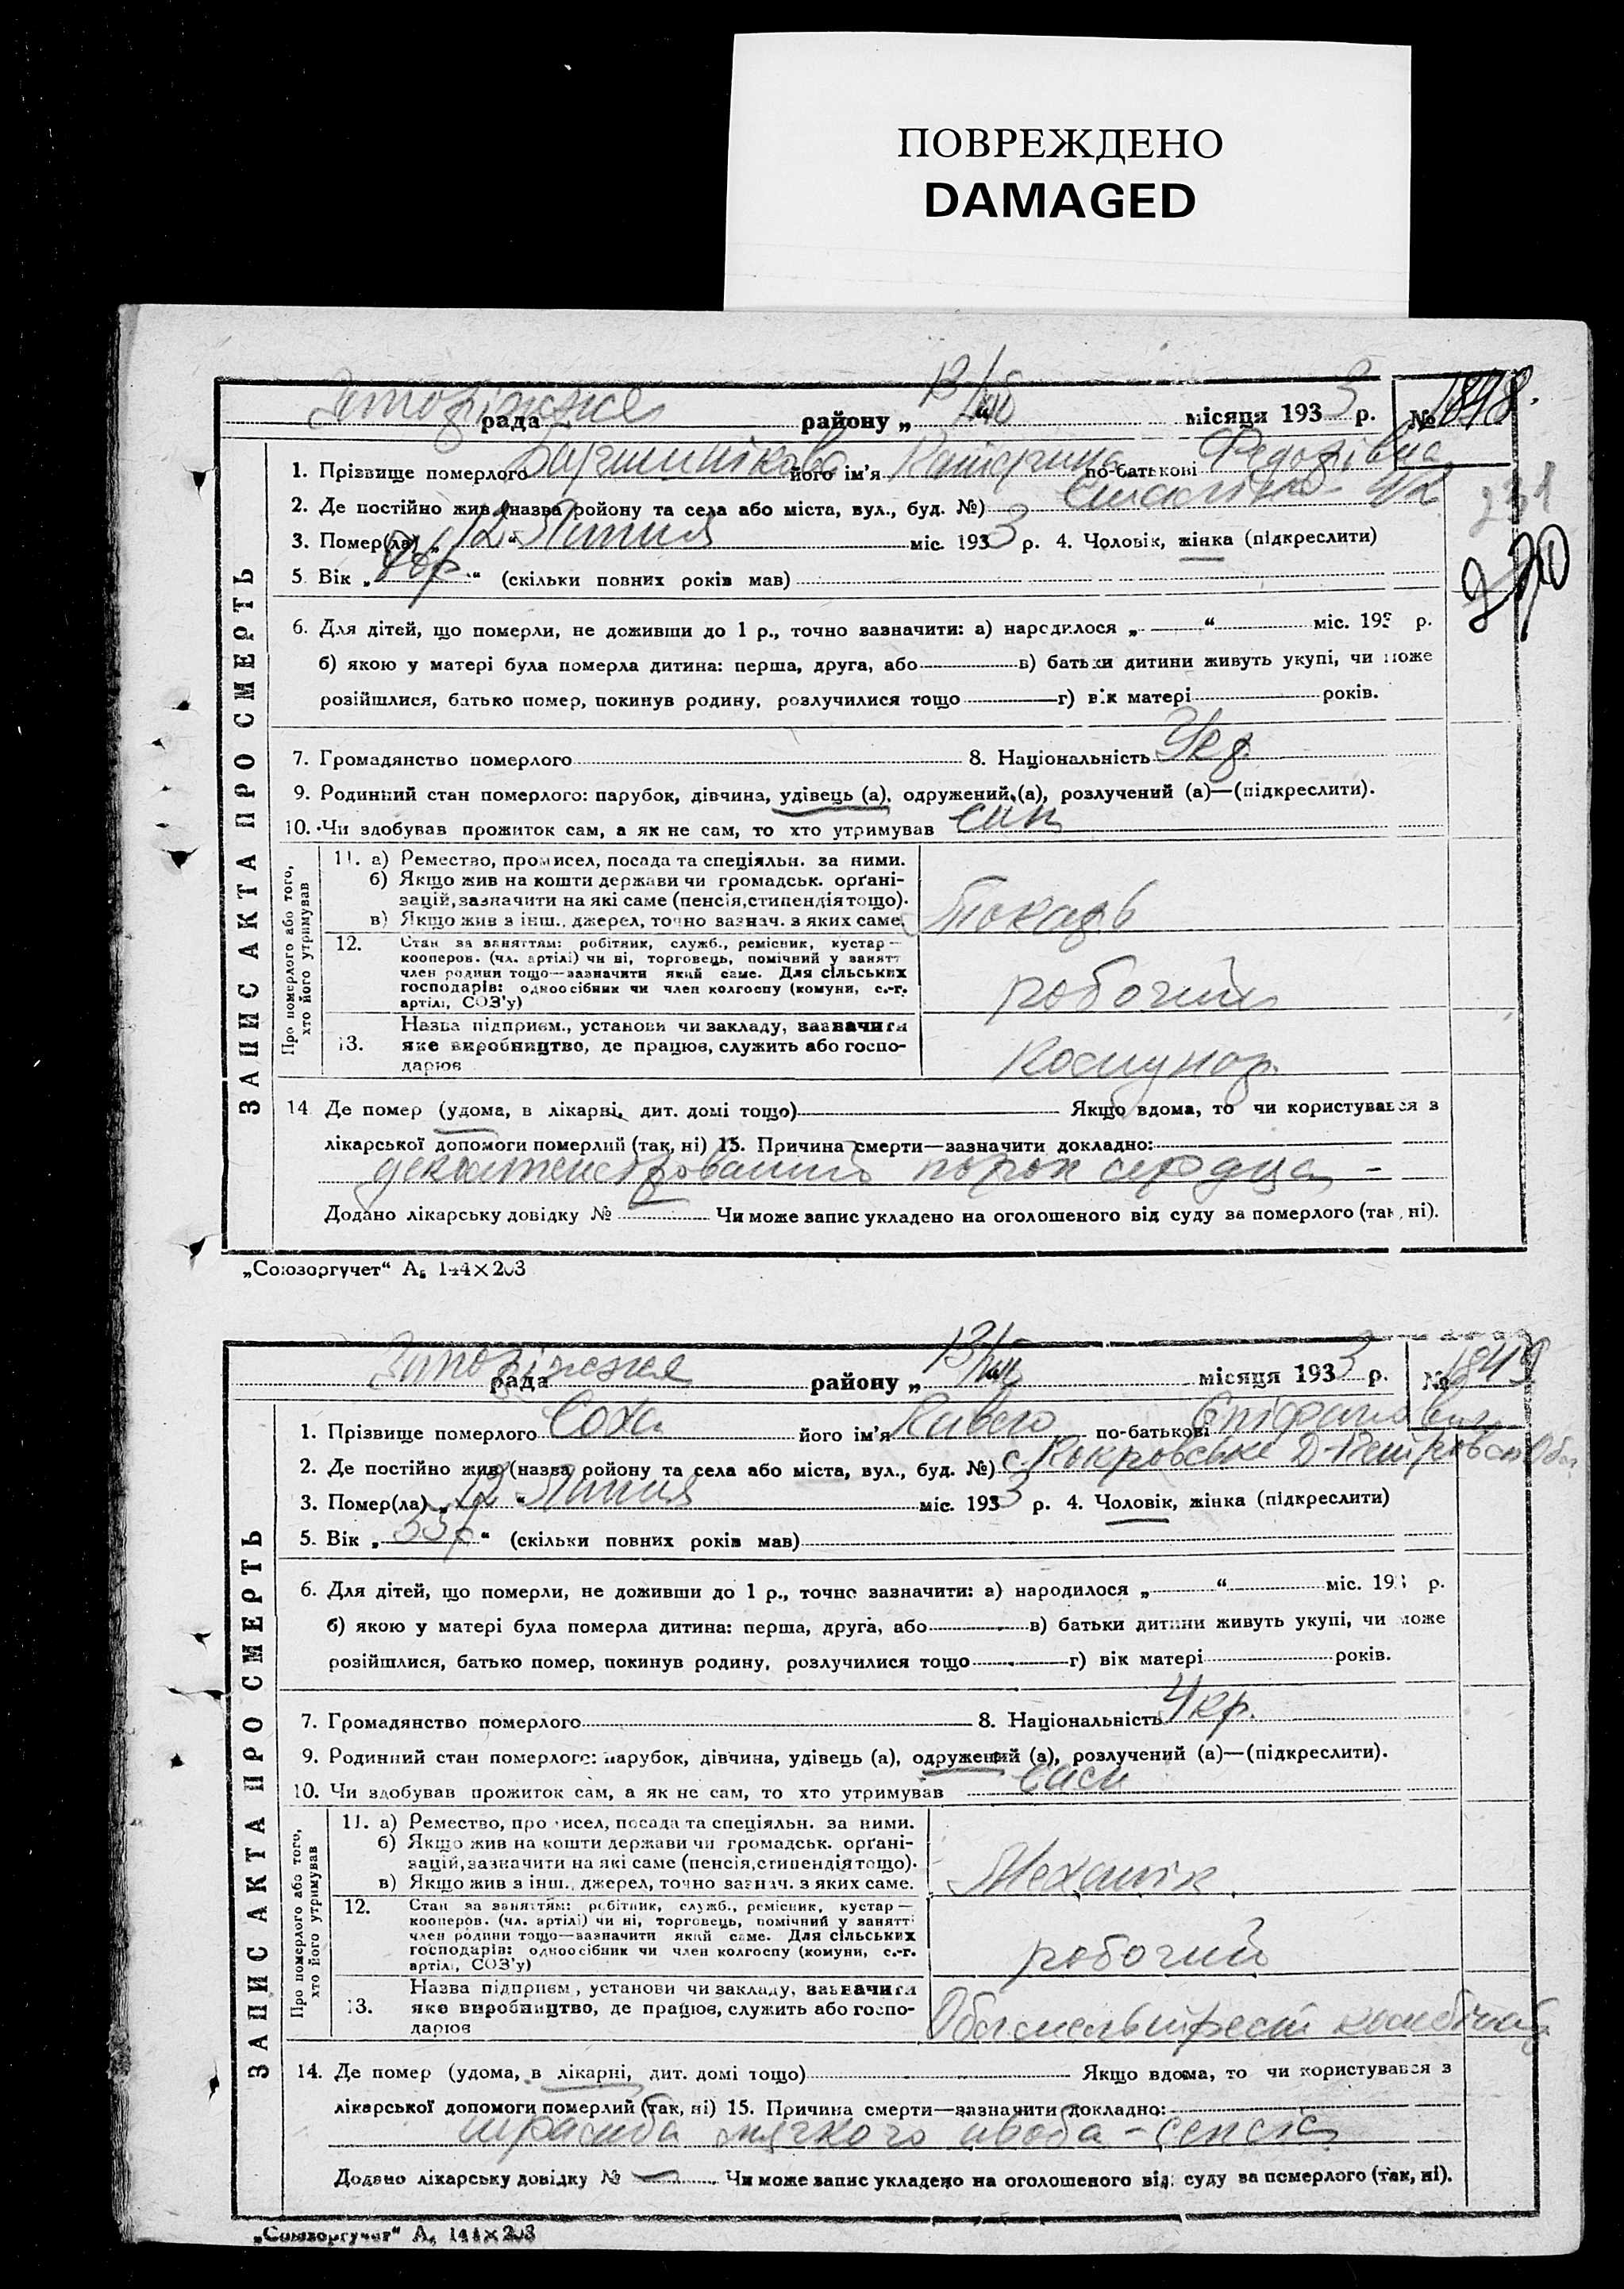 ПОВРЕЖДЕНО
DAMAGED
Запоріжжя рада району „ 13/VII “ місяця 1933 р. № 1848.
1. Прізвище померлого його ім'я Катерина по-батькові Федорівна
2. Де постійно жив (назва ройону та села або міста, вул., буд. №)
3. Помер(ла) „ 12 “ Липня міс. 1933 р. 4. Чоловік, жінка (підкреслити)
231
5. Вік „ “ (скільки повних років мав)
6. Для дітей, що померли, не доживши до 1 р., точно зазначити: а) народилося „ “ міс. 193 р.
б) якою у матері була померла дитина: перша, друга, або в) батьки дитини живуть укупі, чи може
розійшлися, батько помер, покинув родину, розлучилися тощо г) вік матері років.
7. Громадянство померлого 8. Національність Укр
9. Родинний стан померлого: парубок, дівчина, удівець (а), одружений (а), розлучений (а)—(підкреслити).
10. Чи здобував прожиток сам, а як не сам, то хто утримував син
ЗАПИС АКТА ПРО СМЕРТЬ
Про померлого або того,
хто його утримував
11. а) Ремество, промисел, посада та спеціяльн. за ними.
б) Якщо жив на кошти держави чи громадськ. орґані-
зацій, зазначити на які саме (пенсія, стипендія тощо).
в) Якщо жив з інш. джерел, точно зазнач. з яких саме.
Токарь
12. Стан за заняттям: робітник, служб., ремісник, кустар—
кооперов. (чл. артілі) чи ні, торговець, помічний у занятт
член родини тощо—зазначити який саме. Для сільських
господарів: одноосібник чи член колгоспу (комуни, с.-г.
артілі, СОЗ'у)
робочий
13. Назва підприєм., установи чи закладу, зазначити
яке виробництво, де працює, служить або госпо-
дарює
Комунар
14 Де помер (удома, в лікарні, дит. домі тощо) Якщо вдома, то чи користувався з
лікарської допомоги померлий (так, ні) 15. Причина смерти—зазначити докладно:
порок сердца
Додано лікарську довідку № Чи може запис укладено на оголошеного від суду за померлого (так, ні).
„Союзоргучет“ А5 144×203
Запоріжжя рада району „ 13/VII “ місяця 1933 р. № 1849
1. Прізвище померлого Соха його ім'я по-батькові
2. Де постійно жив (назва ройону та села або міста, вул., буд. №) с. Покровське Д-Петровськ Обл
3. Помер(ла) „ 12 “ Липня міс. 1933 р. 4. Чоловік, жінка (підкреслити)
5. Вік „ 35р “ (скільки повних років мав)
6. Для дітей, що померли, не доживши до 1 р., точно зазначити: а) народилося „ “ міс. 193 р.
б) якою у матері була померла дитина: перша, друга, або в) батьки дитини живуть укупі, чи може
розійшлися, батько помер, покинув родину, розлучилися тощо г) вік матері років.
7. Громадянство померлого 8. Національність Укр.
9. Родинний стан померлого: парубок, дівчина, удівець (а), одружений (а), розлучений (а)—(підкреслити).
10. Чи здобував прожиток сам, а як не сам, то хто утримував
ЗАПИС АКТА ПРО СМЕРТЬ
Про померлого або того,
хто його утримував
11. а) Ремество, промисел, посада та спеціяльн. за ними.
б) Якщо жив на кошти держави чи громадськ. орґані-
зацій, зазначити на які саме (пенсія, стипендія тощо).
в) Якщо жив з інш. джерел, точно зазнач. з яких саме.
Механік
12. Стан за заняттям: робітник, служб., ремісник, кустар—
кооперов. (чл. артілі) чи ні, торговець, помічний у занятт
член родини тощо—зазначити який саме. Для сільських
господарів: одноосібник чи член колгоспу (комуни, с.-г.
артілі, СОЗ'у)
робочий
13. Назва підприєм, установи чи закладу, зазначити
яке виробництво, де працює, служить або госпо-
дарює
14. Де помер (удома, в лікарні, дит. домі тощо) Якщо вдома, то чи користувався з
лікарської допомоги померлий (так, ні) 15. Причина смерти—зазначити докладно:
мягкого сепсіс
Додано лікарську довідку № — Чи може запис укладено на оголошеного від суду за померлого (так, ні).
„Союзоргучет“ А5 144×203